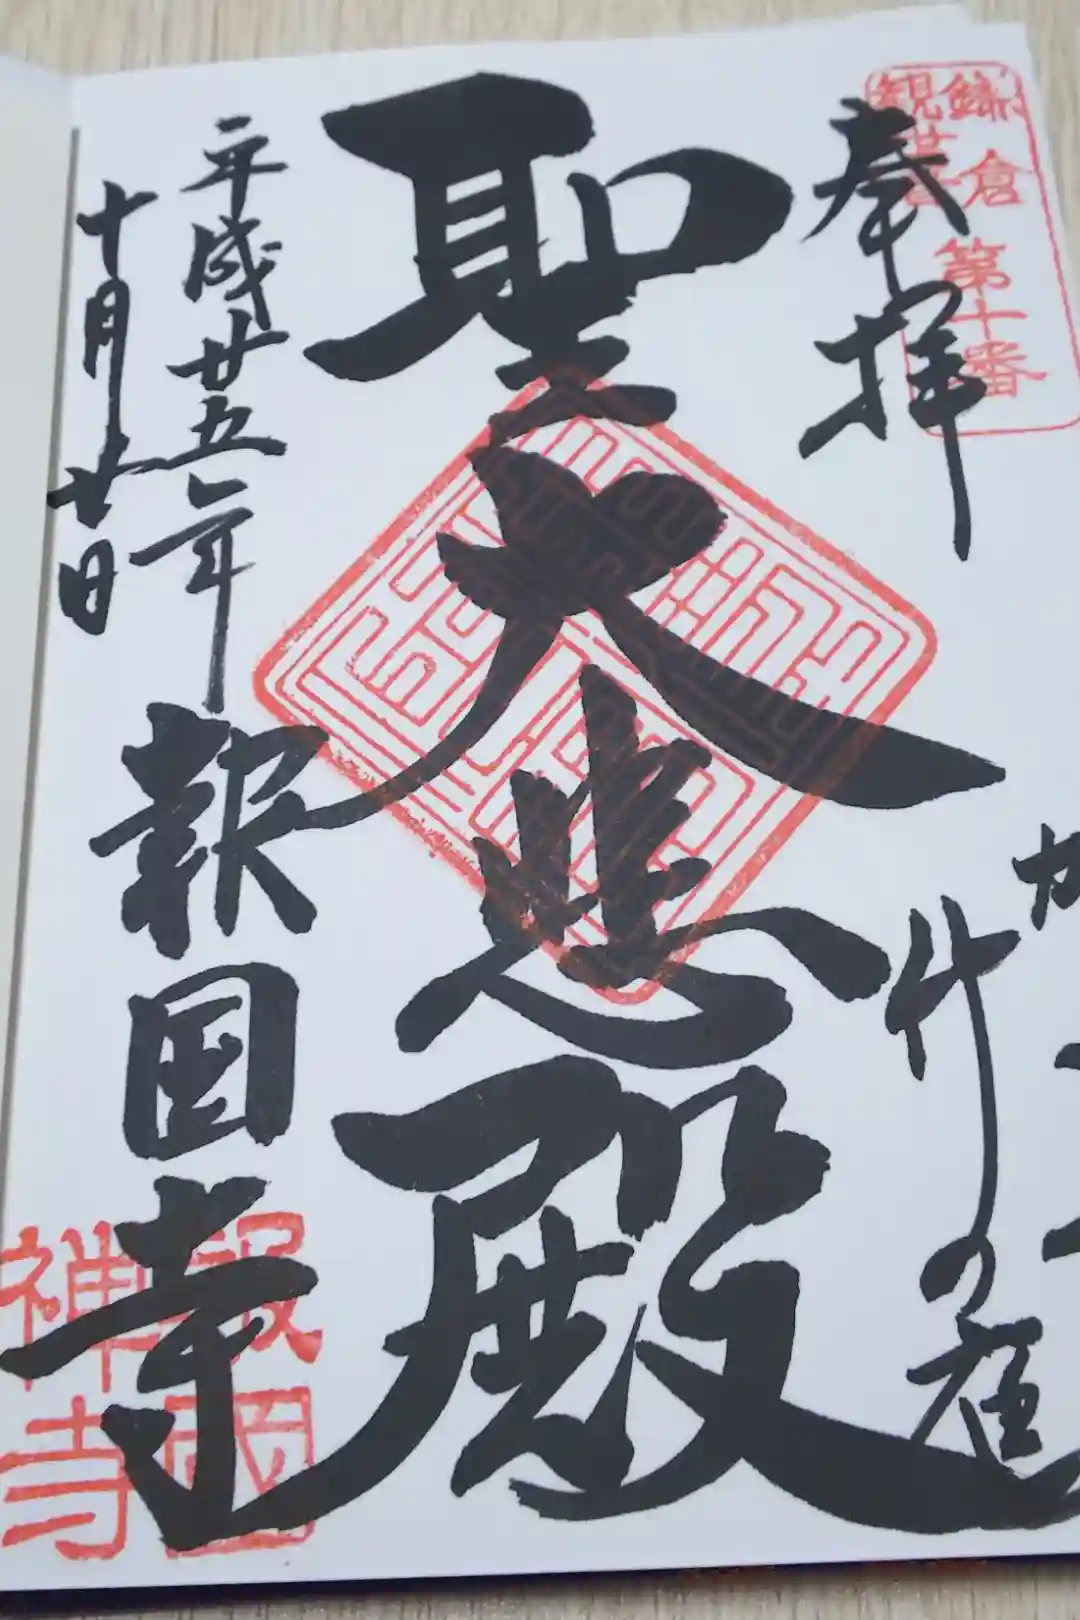 鎌倉
観世音
第十番
奉拝
か
竹の庭
聖大悲殿
平成廿五年
十月廿日
報国寺
報國
禅寺